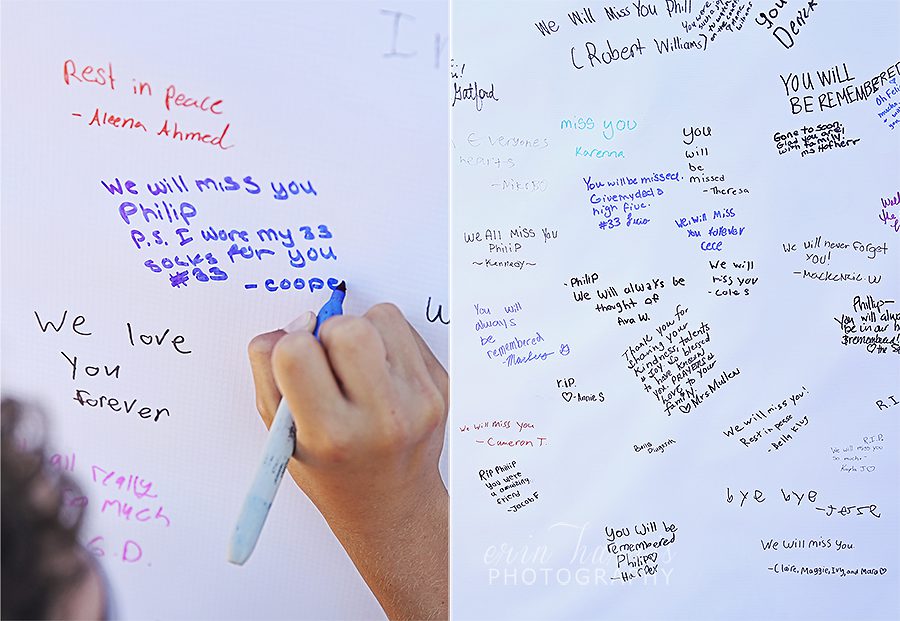 Rest in peace
- Aleena Ahmed
We will miss you
Philip
P.S. I wore my 33
socks for you
#33
- coope
We love
you
forever
really
much
G.D.
We Will Miss You Phill
(Robert Williams)
Derick
YOU WILL
BE REMEMBERED
Gatford
miss you
Karenna
Everyones
hearts
- Niko
you
will
be
missed
- Theresa
Gone to soon.
Glad you are
with family.
ms Hofherr
You will be missed.
Give my dad a
high five.
#33
We will miss
you forever
cece
We All Miss you
Philip
~Kennedy~
We will never forget
you!
- Mackenzie.W
We will
miss you
- Cole S
- Philip
We will always be
thought of
Ava W.
You will
always
be
remembered
Thank you for
sharing your
kindness, talents
& joy. So blessed
to have known
you. PRAYERS &
LOVE to
your
family
♡ Mrs Mullen
Phillip-
You will always
be in our
& remembered!
r.i.p.
♡- Annie S
We will miss you
- Cameron T.
We will miss you!
Rest in peace
- Beth
R.I.
R.I.P.
We will miss you
so much~
Kayla J ♡
Rip Philip
you were
a amazing
friend
- Jacob F
bye bye
- Jesse
You Will be
remembered
Philip ♡
- Harper
We Will miss you
- Claire, Maggie, Ivy, and Mara ♡
erin
PHOTOGRAPHY